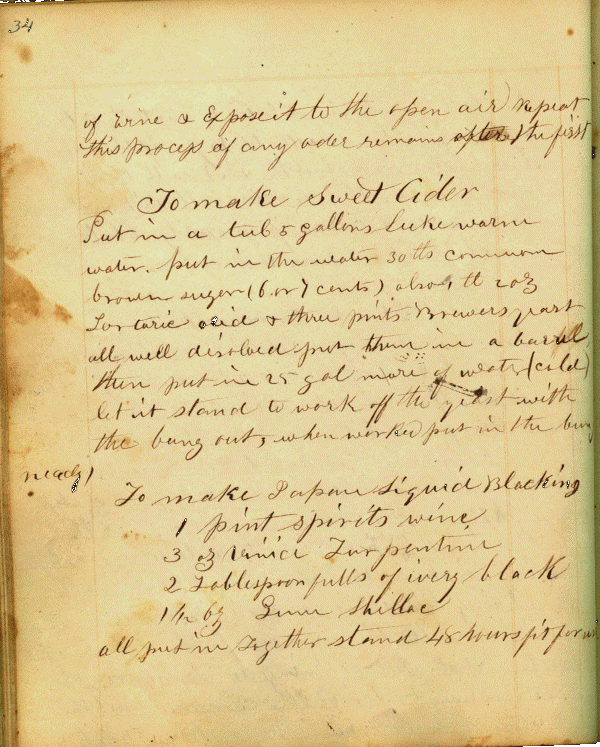 34
of Urine & Expose it to the open air) repeat
this process if any oder remains after) the first
To make Sweet Cider
Put in a tub 5 gallons luke warm
water. put in the water 30 tts common
brown suger (6 or 7 cents) also 1 tt 2 oz
Tartaric acid & three pints Brewers yeast
all well disolved put them in a barrel
then put in 25 gal more of water (cold)
let it stand to work off the yeast with
the bung out, when worked put in the bung
ready)
To make Japan Liquid Blacking
1 pint spirits wine
3 oz Venice Turpentine
2 Tablespoonfulls of ivery black
1½ oz Gum Shillac
all put in Together stand 48 hours fit for